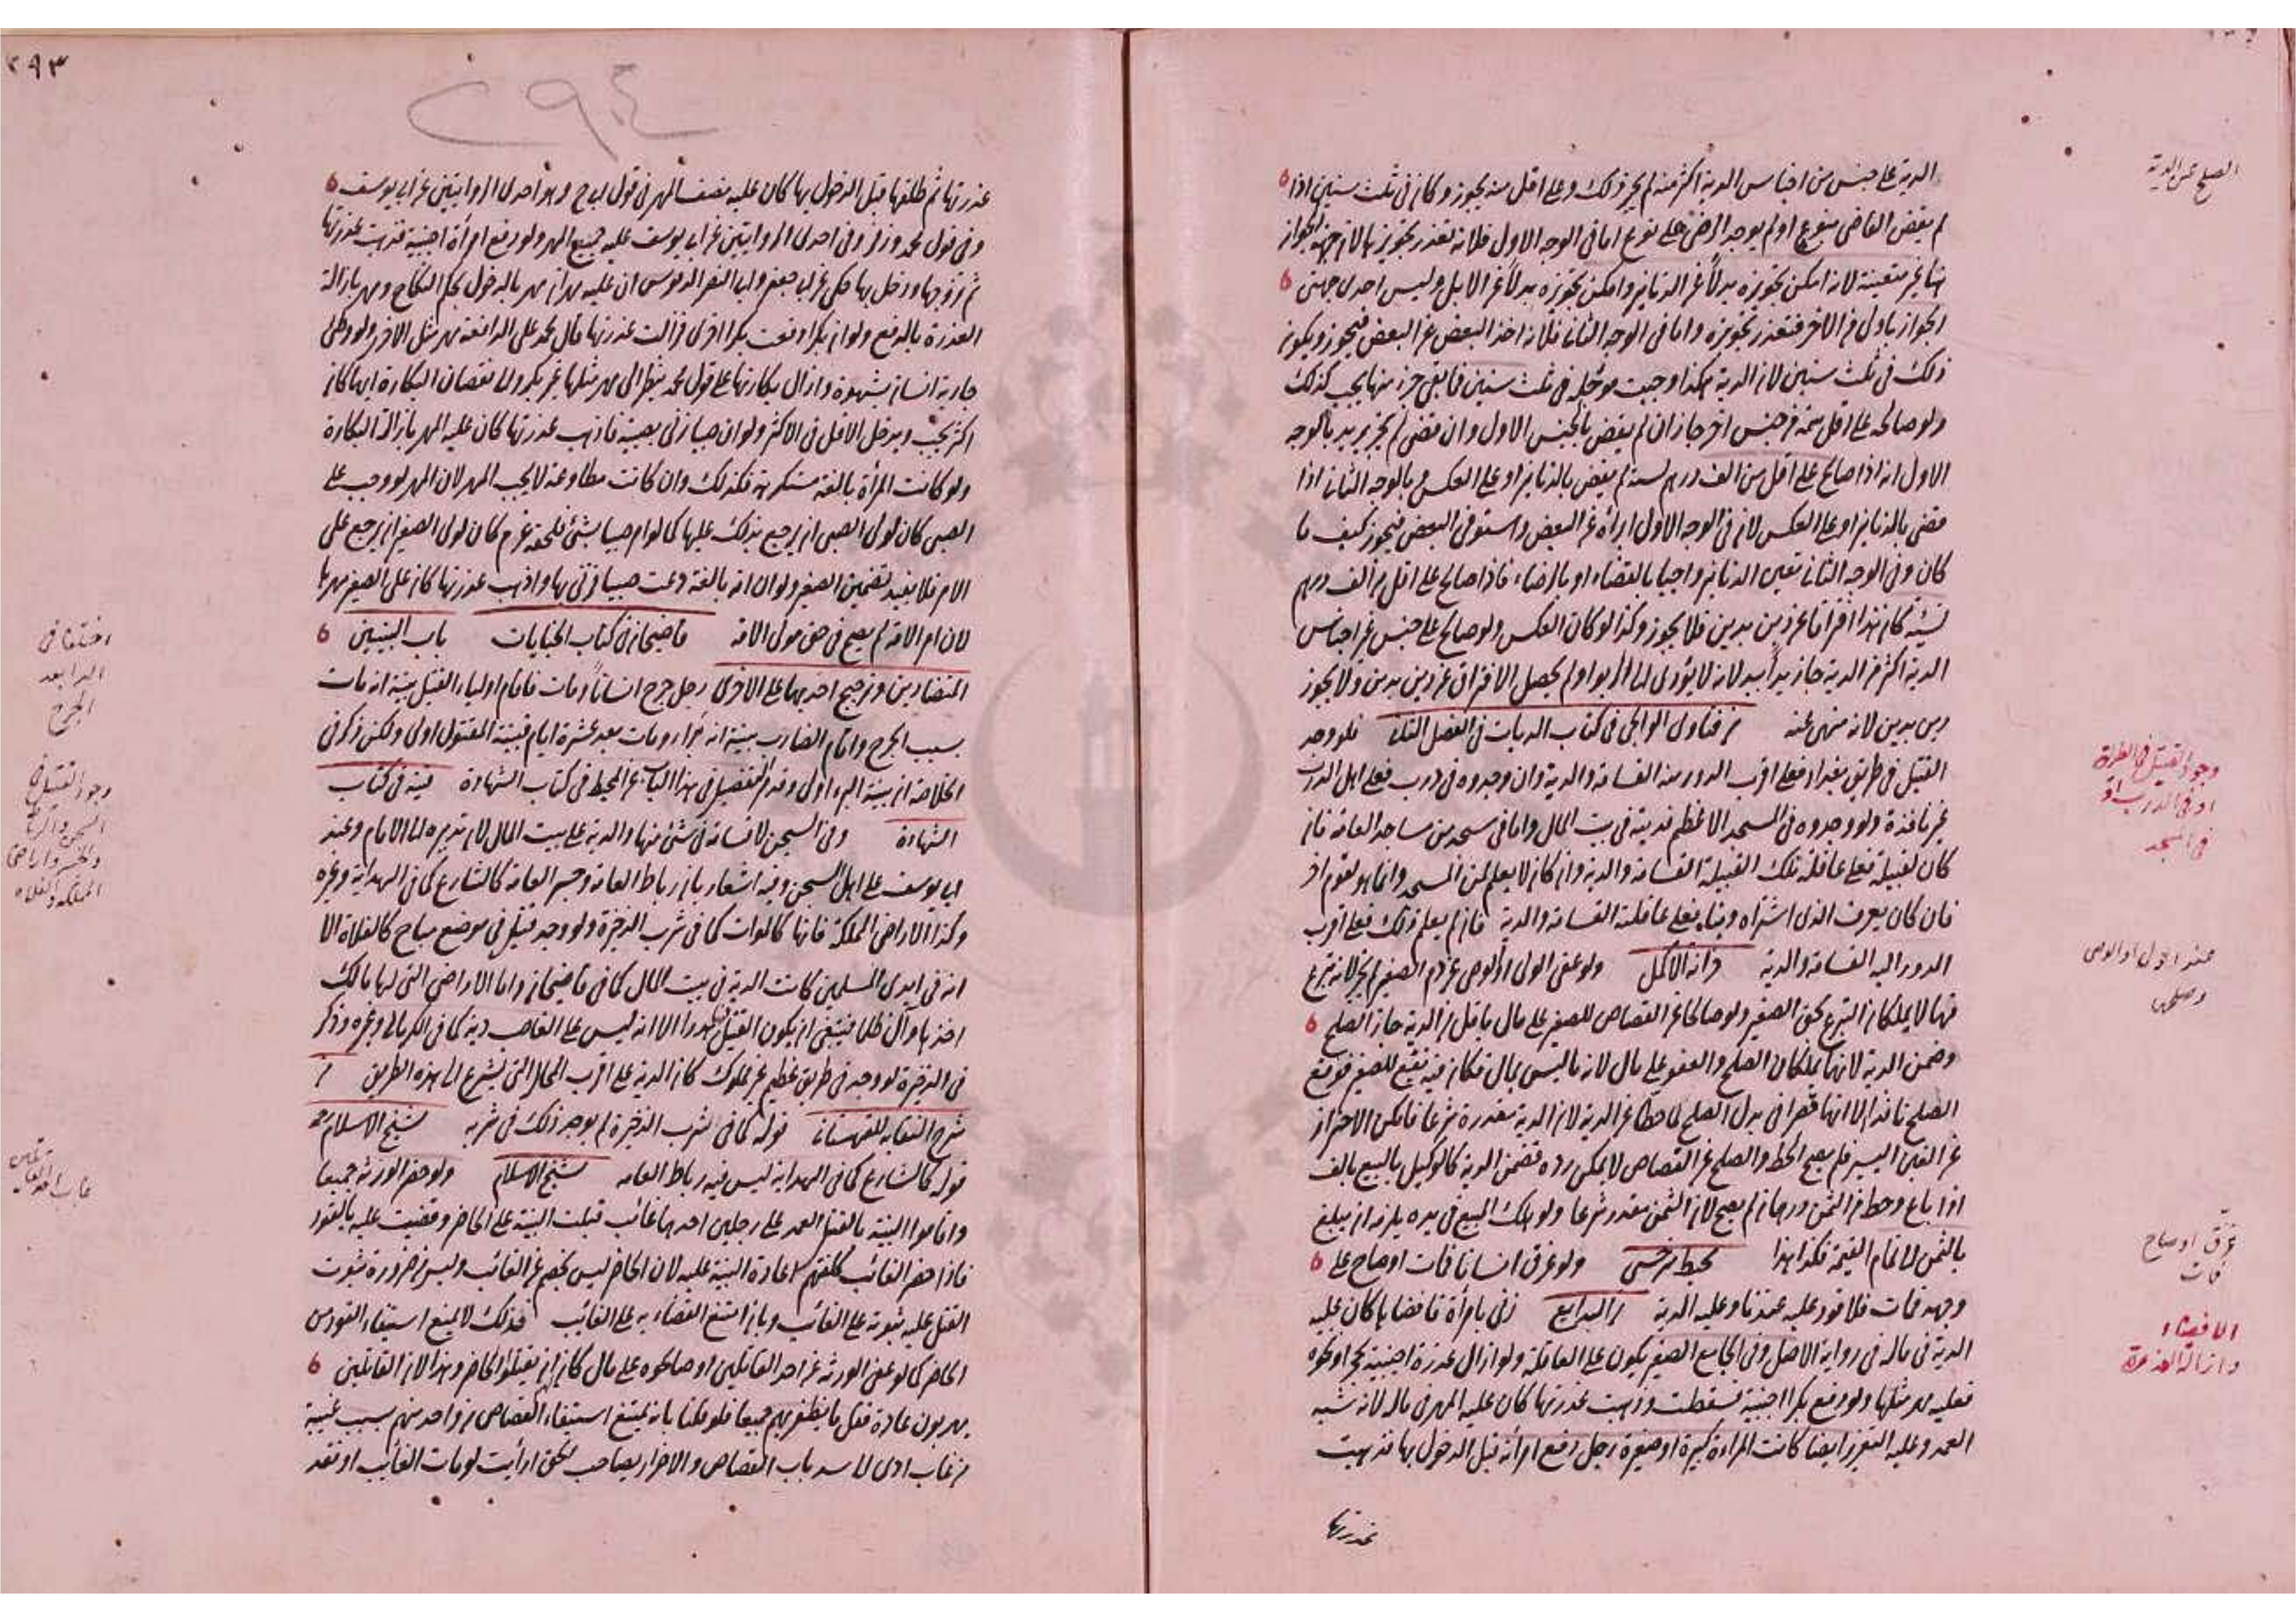 الصلح عن الدية
الدية على جنس من اجناس الدية اكثر منه لم يجز ذلك وعلى اقل منه يجوز وكان في ثلث سنين اذا
لم يقض القاضي بنوع او لم يوجد الرضى على نوع اما في الوجه الاول فلانه تعذر تجويز
متعينة لانه امكن تجويزه بدلاً عن الدنانير وامكن تجويزه بدلاً عن الابل وليس احدى جهتي
الجواز باولى من الاخر فتعذر تجويزه واما في الوجه الثاني فلانه اخذ البعض عن البعض فيجوز ويكون
ذلك في ثلث سنين لان الدية هكذا وجبت مؤجلة في ثلث سنين فابقى جزء منها يجب كذلك
ولو صالحه على اقل منه من جنس اخر جاز ان لم يقض بالجنس الاول وان قضى لم يجز يريد بالوجه
الاول انه اذا صالح على اقل من الف درهم نسيئة لم يقض بالدنانير او على العكس وبالوجه الثاني اذا
قضى بالدنانير او على العكس لان في الوجه الاول ابرأه عن البعض واستوفى البعض فيجوز كيف ما
كان وفي الوجه الثاني تعين الدنانير واجبا بالقضاء او بالرضاء فاذا صالح على اقل من الف درهم
نسيئة كان هذا افتراقا عن دين بدين فلا يجوز وكذا لو كان العكس ولو صالح على جنس غير اجناس
الدية اكثر من الدية جاز يداً بيد لانه لا يؤدي الى الربوا ولم يحصل الافتراق عن دين بدين ولا يجوز
دين بدين لانه منهي عنه من فتاوى الوالجي في كتاب الديات في الفصل الثالث فلو وجد
القتيل في طريق بغداد فعلى اقرب الدور منه القسامة والدية وان وجدوه في درب فعلى اهل الدرب
غير نافذة ولو وجدوه في المسجد الاعظم فديته في بيت المال واما في مسجد من مساجد العامة فان
كان لقبيلة فعلى عاقلة تلك القبيلة القسامة والدية وان كان لا يعلم لمن المسجد وانما هو لقوم اخر
فان كان يعرف الذي اشتراه وبناه فعلى عاقلته القسامة والدية فان لم يعلم ذلك فعلى اقرب
الدور اليه القسامة والدية خزانة الاكمل ولو عفى الولي او الوصي عن دم الصغير لم يجز لانه تبرع
منهما لا يملكان التبرع بحق الصغير ولو صالحا عن القصاص للصغير على مال باقل من الدية جاز الصلح
وضمن الدية لانهما يملكان الصلح والعفو على مال لانه ما ليس بمال فكان فيه نفع للصغير فوقع
الصلح نافذا الا انهما قصرا في بدل الصلح لما حطا عن الدية لان الدية مقدرة شرعا فامكن الاحتراز
عن الغبن اليسير فلم يصح الحط والصلح عن القصاص لا يمكن رده فضمن الدية كالوكيل بالبيع بالف
اذا باع وحط من الثمن درهما لم يصح لان الثمن مقدر شرعا ولو هلك المبيع في يده يلزمه ان يبلغ
بالثمن الى تمام القيمة فكذا هذا محيط سرخسي ولو غرق انسانا فمات او صاح على
وجهه فمات فلا قود عليه عندنا وعليه الدية من البدايع زنى بامرأة فافضاها كان عليه
الدية في ماله في رواية الاصل وفي الجامع الصغير يكون على العاقلة ولو ازال عذرة اجنبية بحجر او نحوه
فعليه مهر مثلها ولو دفع بكرا اجنبية فسقطت وذهبت عذرتها كان عليه المهر في ماله لانه شبه
العمد وعليه التعزير ايضا كانت المرأة كبيرة او صغيرة رجل دفع امرأته قبل الدخول بها فذهبت
عذرتها
وجود القتيل في الطريق
او في الدرب او
في المسجد
عفو الولي او الوصي
وصلحهما
غرق او صاح
فمات
الافضاء
وازالة العذرة
٢٩٣
٢٩٤
عذرتها ثم طلقها قبل الدخول بها كان عليه نصف المهر في قول ابي ح وهو احدى الروايتين عن ابي يوسف
وفي قول محمد وزفر وفي احدى الروايتين عن ابي يوسف عليه جميع المهر ولو دفع امرأة اجنبية فذهبت عذرتها
ثم تزوجها ودخل بها حكي عن ابي جعفر وابي النصر الدبوسي ان عليه مهران مهر بالدخول بحكم النكاح ومهر بازالة
العذرة بالدفع ولو ان بكرا دفعت بكرا اخرى فزالت عذرتها قال محمد على الدافعة مهر مثل الاخرى ولو وطئ
جارية انسان بشهوة وازال بكارتها على قول محمد ينظر الى مهر مثلها غير بكر والى نقصان البكارة ايهما كان
اكثر يجب ويدخل الاقل في الاكثر ولو ان صبيا زنى بصبية فاذهب عذرتها كان عليه المهر بازالة البكارة
ولو كانت المرأة بالغة مستكرهة فكذلك وان كانت مطاوعة لا يجب المهر لان المهر لو وجب على
الصبي كان لولي الصبي ان يرجع بذلك عليها كما لو امر صبيا بشئ فلحقه غرم كان لولي الصغير ان يرجع على
الامر فلا يفيد تضمين الصغير ولو ان امة بالغة دعت صبيا فزنى بها واذهب عذرتها كان على الصغير مهرها
لان امر الامة لم يصح في حق مولى الامة قاضيخان في كتاب الجنايات باب البينتين
المتضادتين وترجيح احديهما على الاخرى رجل جرح انساناً ومات فاقام اولياء القتيل بينة انه مات
بسبب الجرح واقام الضارب بينة انه برأ ومات بعد عشرة ايام فبينة المقتول اولى ولكن ذكر في
الخلاصة ان بينة البرء اولى وقد مر التفصيل في هذا الباب عن المحيط في كتاب الشهادة قنية في كتاب
الشهادة وفي السجن لا قسامة في شئ منها والدية على بيت المال لان تدبيره الى الامام وعند
ابي يوسف على اهل السجن وفيه اشعار بان رباط العامة وجسر العامة كالشارع كما في الهداية وغيره
وكذا الاراضي المملكة فانها كالموات كما في شرب الذخيرة ولو وجد قتيل في موضع مباح كالفلاة الا
انه في ايدي المسلمين كانت الدية في بيت المال كما في قاضيخان واما الاراضي التي لها مالك
اخذها وال ظلما فينبغي ان يكون القتيل هدرا الا انه ليس على الغاصب دية كما في الكرماني وغيره وذكر
في الذخيرة لو وجد في طريق عظيم غير مملوك كان الدية على اقرب المحال التي يشرع الى هذه الطريق من
شرح النقاية للقهستاني قوله كما في شرب الذخيرة لم يوجد ذلك في شربه شيخ الاسلام
قوله كالشارع كما في الهداية ليس فيه رباط العامة شيخ الاسلام ولو حضر الورثة جميعا
واقاموا البينة بالقتل العمد على رجلين احدهما غائب قبلت البينة على الحاضر وقضيت عليه بالقود
فاذا حضر الغائب كلفتهم اعادة البينة عليه لان الحاضر ليس بخصم عن الغائب وليس من ضرورة ثبوت
القتل عليه ثبوته على الغائب وبان امتنع القضاء به على الغائب فذلك لا يمنع استيفاء القود من
الحاضر كما لو عفى الورثة عن احد القاتلين او صالحوه على مال كان لهم ان يقتلوا الحاضر وهذا لان القاتلين
يهربون عادة فقل ما يظفر بهم جميعا فلو قلنا بانه يمتنع استيفاء القصاص من واحد منهم بسبب غيبة
من غاب ادى الى سد باب القصاص والاضرار بصاحب الحق ارأيت لو مات الغائب او فقد
اختلفا في
البرء بعد
الجرح
وجود القتيل في
السجن والرباط
والجسر واراضي
المملكة والفلاة
غاب احد القاتلين